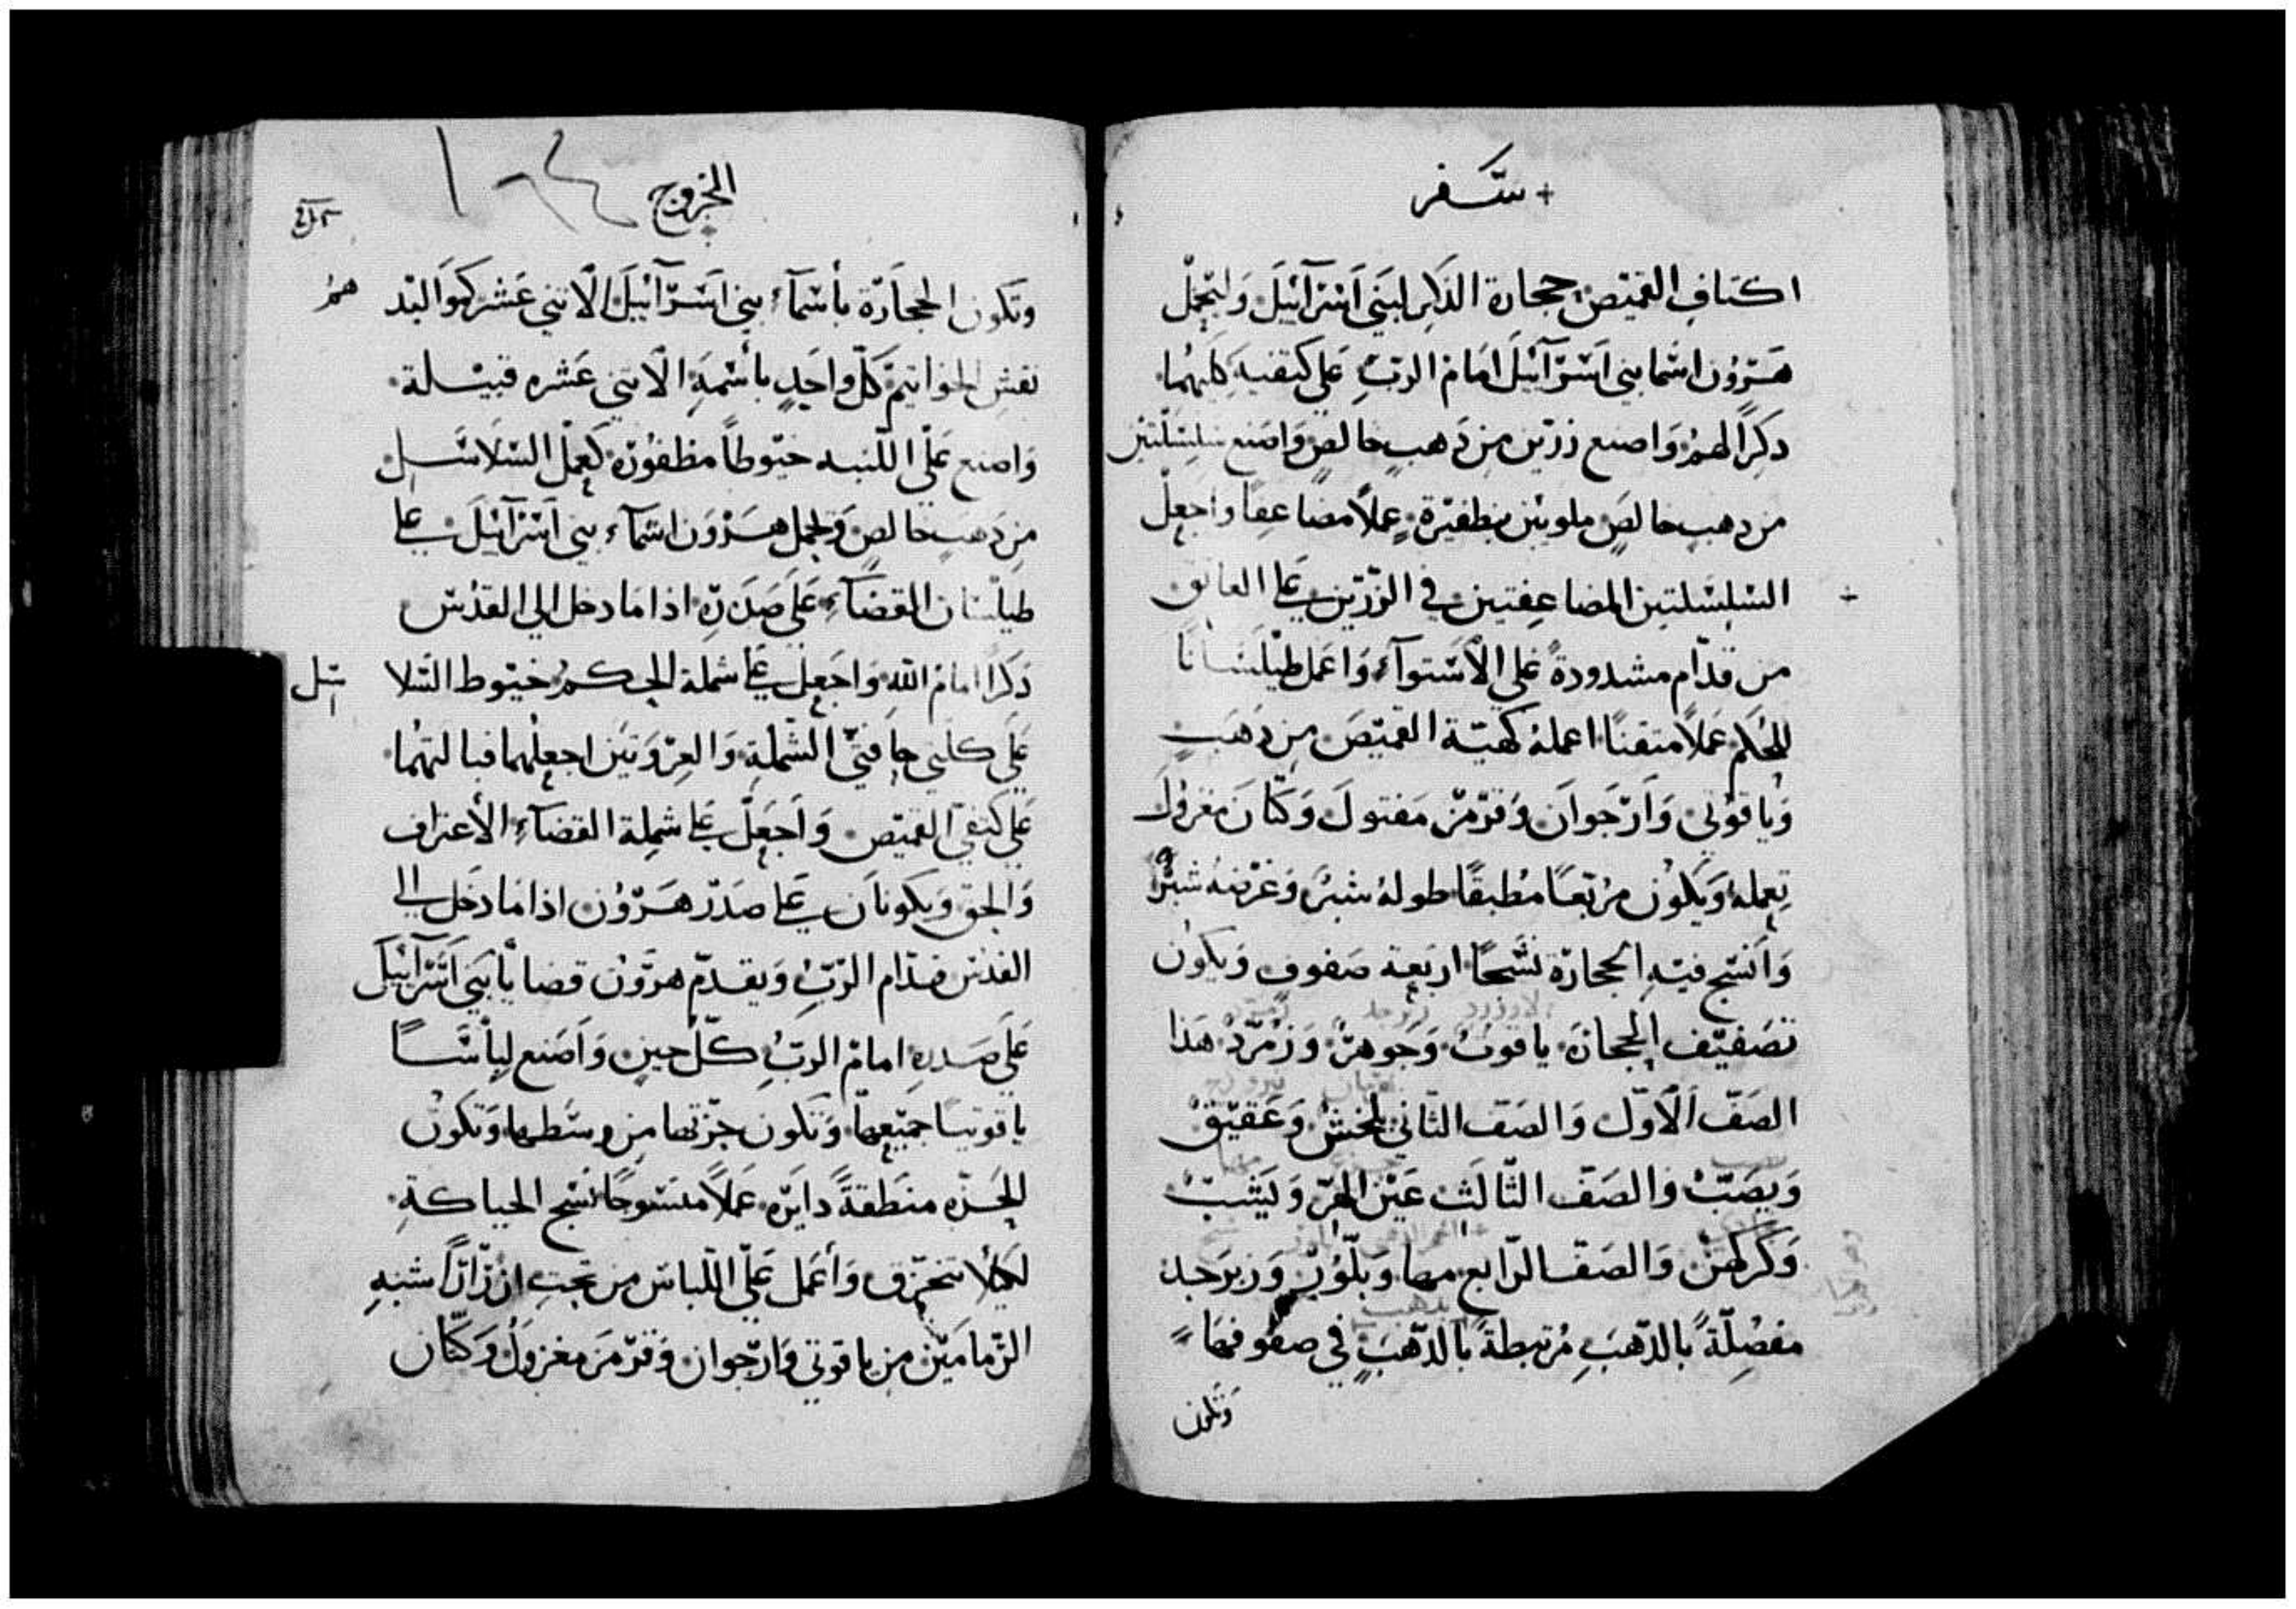 + سَّفر
اكتافِ القميَص حجارة الذكِر لبَني اَسَرآئيْلَ وَليَحِمْل
هَرَوُن اسَما بني اَسَرَّآئيْلَ امَامْ الربِّ عَلي كتفيه كليهُما
دكِرًا لهمُ وَاصنع زرّين من دَهبٍ خالصٍ وَاصَنع سلِسَلتين
من دهبٍ خالصَ ملويَين بظفيَرة عملاً مضاعِفا وَاجعلْ
السَلِسَلتين المضاعِفتين في الزرّين عَلي العاتق
من قدّام مشدودةً عَلي الاَسَتوآء وَاعَمل طيَلسَانًا
للحُكم عَملاً متقنًا اعملهُ كهيّة القميَصَ من دَهَبٍ
وَياقوُتي وَاَرْجَوان وَقرّمزْ مَفتولَ وَكتّانَ مغزولَ
تعملهُ وَيكوُن مرُبَعًا مُطبقًا طولهُ شبرَ وَعَرْضهُ شبرًا
وَاَنسَج فيَهِ الحجارَة نسَجًا اربَعة صَفوف وَيكوُن
تصَفيّف الحجارَة ياقوتُ وَجَوهرْ وَزمُرّدْ هَذا
الصَفّ الاَوّل وَالصَفّ الثاني بلخشْ وَعَقيّقْ
وَيصَبّ وَالصَفّ الثّالَث عَيْن الهرّ وَيَشبّ
وَكركهَنْ وَالصَفّ الرّابع مها وَبلّوُرْ وَزبرَجدْ
مفصِلّةً بالدّهبَ مُرتبطةً بالدّهَبٍ في صفوفها
وَتكون
الخروج
١٠٤
وتكون الحجاَرّة بأسَمآء بني اسَرّآئيْلَ الاَثني عَشر كمَوَالبَد همُ
نقشِ الخوَاتيَم كلّ واحَدٍ بأسَمهِ الاَثني عَشره قبيَلة
وَاصنع عَلّي اللبَسه خيَوطاً مظفوُرَه كعِمل السَلاسَل
من دَهبٍ خالصٍ وَيحمل هَرَوَن اسَمآء بني اَسَرَآئيْلَ عَلي
طيَلسَان القضَآء عَلي صَدَرهِ اذا مَا دخل الي القدُسَ
ذكرًا امامْ اللهِ وَاجَعِل عَلي شملة الحكمُ خيَوط السَلا سَل
عَلي كلتي حافتيّ الشّملَةِ وَالعِرَوَتيَن اجعِلهُما قبالتهُما
عَلي كتفيّ القميَص وَاَجَعِلّ عَلي شمِلة القضآء الأعتراف
وَالحق وَيكونَان عَلي صَدَرّ هَرَوُن اذا مَا دَخل الي
القدُسَ قدّام الرَبِّ وَيقدمّ هرَوُن قضايَا بَني اَسَرَآئيْلَ
عَلي صَدرهِ امامْ الربِّ كلّ حينٍ وَاَصَنع لبِاَسَاً
ياقوتيا جمَيعِها وَتكون جزتها من وسَطها وَتكوُن
للجَزّه منَطقةً دايَره عَملاً منسَوجًا نسَج الحياكةِ
لكيَلا تتخرّق وَأعَمل عَلّي اللّباسَ من تحتِ ازرارًا شبَهِ
الرّمامَيّن من ياقوتي وَارّجوان وَقرّمزَ مغزولَ وَكتّان